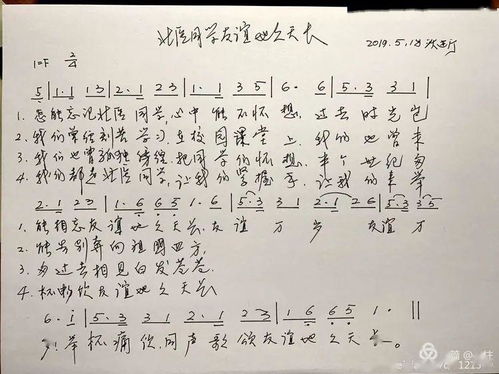 北医同学友谊地久天长
2019.5.18
1=F 2/4
5 | 1·1 13 | 2·1 23 | 1·1 35 | 6· 6 | 5·3 31 |
1. 怎能忘记北医同学,心中能不怀想,过去时光岂
2. 我们曾经刻苦学习,在校园课堂上,我们也曾来
3. 我们也曾孤独 把同学们怀想,半个世纪匆
4. 我们都是北医同学,让我们紧握手,让我们来举
2·1 23 | 1·6 65 | 1·6 | 5·3 31 | 2·1 26 | 5·3 53
1. 能相忘友谊地久天长,友谊万岁 友谊万
2. 能告别奔向祖国四方,
3. 匆过去相见白发苍苍,
4. 杯畅饮友谊地久天长
6· i | 5·3 31 | 2·1 23 | 1 6 65 | 1· ||
岁!举杯痛饮,同声歌颂友谊地久天长。